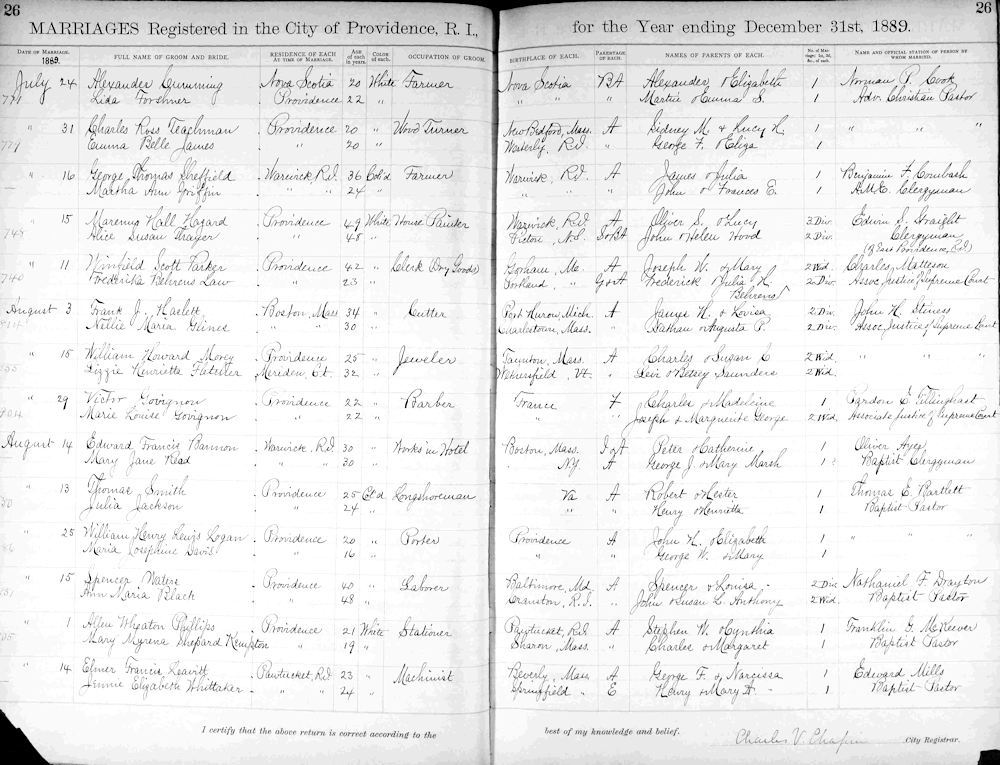 26
26
MARRIAGES Registered in the City of Providence, R. I., for the Year ending December 31st, 1889.
DATE OF MARRIAGE. 1889. FULL NAME OF GROOM AND BRIDE. RESIDENCE OF EACH AT TIME OF MARRIAGE. Age of each in years. Color of each. OCCUPATION OF GROOM. BIRTHPLACE OF EACH. PARENTAGE OF EACH. NAMES OF PARENTS OF EACH. No. of Marriage, &c., of each. NAME AND OFFICIAL STATION OF PERSON BY WHOM MARRIED.
July 24 Alexander Cumming Nova Scotia 20 White Farmer Nova Scotia BA Alexander & Elizabeth 1 Norman P. Cook
Lida Forshner Providence 22 " " " " Martin & Emma S. 1 Adv. Christian Pastor
" 31 Charles Ross Teachman Providence 20 " Wood Turner New Bedford, Mass. A Sidney M. & Lucy H. 1 " " "
Emma Belle James " 20 " Westerly, R.I. " George F. & Eliza 1
" 16 George Thomas Sheffield Warwick, R.I. 36 Col'd Farmer Warwick, R.I. A James & Julia 1 Benjamin F. Combash
Martha Ann Griffin " " 24 " " " " John & Frances E. 1 A.M.E. Clergyman
" 15 Hall Hazard Providence 49 White House Painter Warwick, R.I. A Oliver S. & Lucy 3 Div. Edwin S. Straight
Alice Susan Thayer " 48 " Pictou, N.S. John & Helen Wood 2 Div. Clergyman
(of East Providence, R.I.)
" 11 Winfield Scott Parker Providence 42 " Clerk (Dry Goods) Gorham, Me. A Joseph W. & Mary 2 Wid. Charles Matteson
Frederika Behrens Law " 23 " Portland " G&A Frederick & Julia H. 2 Div. Assoc. Justice of Supreme Court
Behrens
August 3 Frank J. Haslett Boston, Mass 34 " Cutter Port Huron, Mich. A James H. & Lovisa 2 Div. John H. Stiness
Nellie Maria Glines " " 30 " Charlestown, Mass. " Nathan & Augusta P. 2 Div. Assoc. Justice of Supreme Court
" 15 William Howard Morey Providence 25 " Jeweler Taunton, Mass. A Charles & Susan C. 2 Wid. " " "
Lizzie Henrietta Fletcher Meriden, Ct. 32 " Wethersfield, Vt. " Levi & Betsey Saunders 2 Wid.
" 29 Victor Govignon Providence 22 " Barber France F Charles & Madeleine 1 Pardon E. Tillinghast
Marie Louise Govignon " 22 " " " Joseph & Marguerite George 2 Wid. Associate Justice of Supreme Court
August 14 Edward Francis Bannon Warwick, R.I. 30 " Works in Hotel Boston, Mass. I&A Peter & Catherine 1 Oliver Ayer
Mary Jane Read " " 30 " N.Y. A George J. & Mary Marsh 1 Baptist Clergyman
" 13 Thomas Smith Providence 25 Col'd Longshoreman Va A Robert & Hester 1 Thomas E. Bartlett
Julia Jackson " 24 " " " Henry & Henrietta 1 Baptist Pastor
" 25 William Henry Lewis Logan Providence 20 " Porter Providence A John H. & Elizabeth 1 " " "
Maria Josephine Davis " 16 " " " George W. & Mary 1
" 15 Spencer Waters Providence 40 " Laborer Baltimore, Md. A Spencer & Louisa 2 Div. Nathaniel F. Drayton
Ann Maria Black " 48 " Cranston, R.I. " John & Susan L. Anthony 2 Wid. Baptist Pastor
" 1 Allen Wheaton Phillips Providence 21 White Stationer Pawtucket, R.I. A Stephen W. & Cynthia 1 Franklin G. McKeever
Mary Myrena Shepard Kempton " 19 " Sharon, Mass. " Charles & Margaret 1 Baptist Pastor
" 14 Elmer Francis Leavitt Pawtucket, R.I. 23 " Machinist Beverly, Mass. A George F. & Narcissa 1 Edward Mills
Jennie Elizabeth Whittaker " " 24 " Springfield " E Henry & Mary A. 1 Baptist Pastor
I certify that the above return is correct according to the best of my knowledge and belief.
Charles V. Chapin City Registrar.